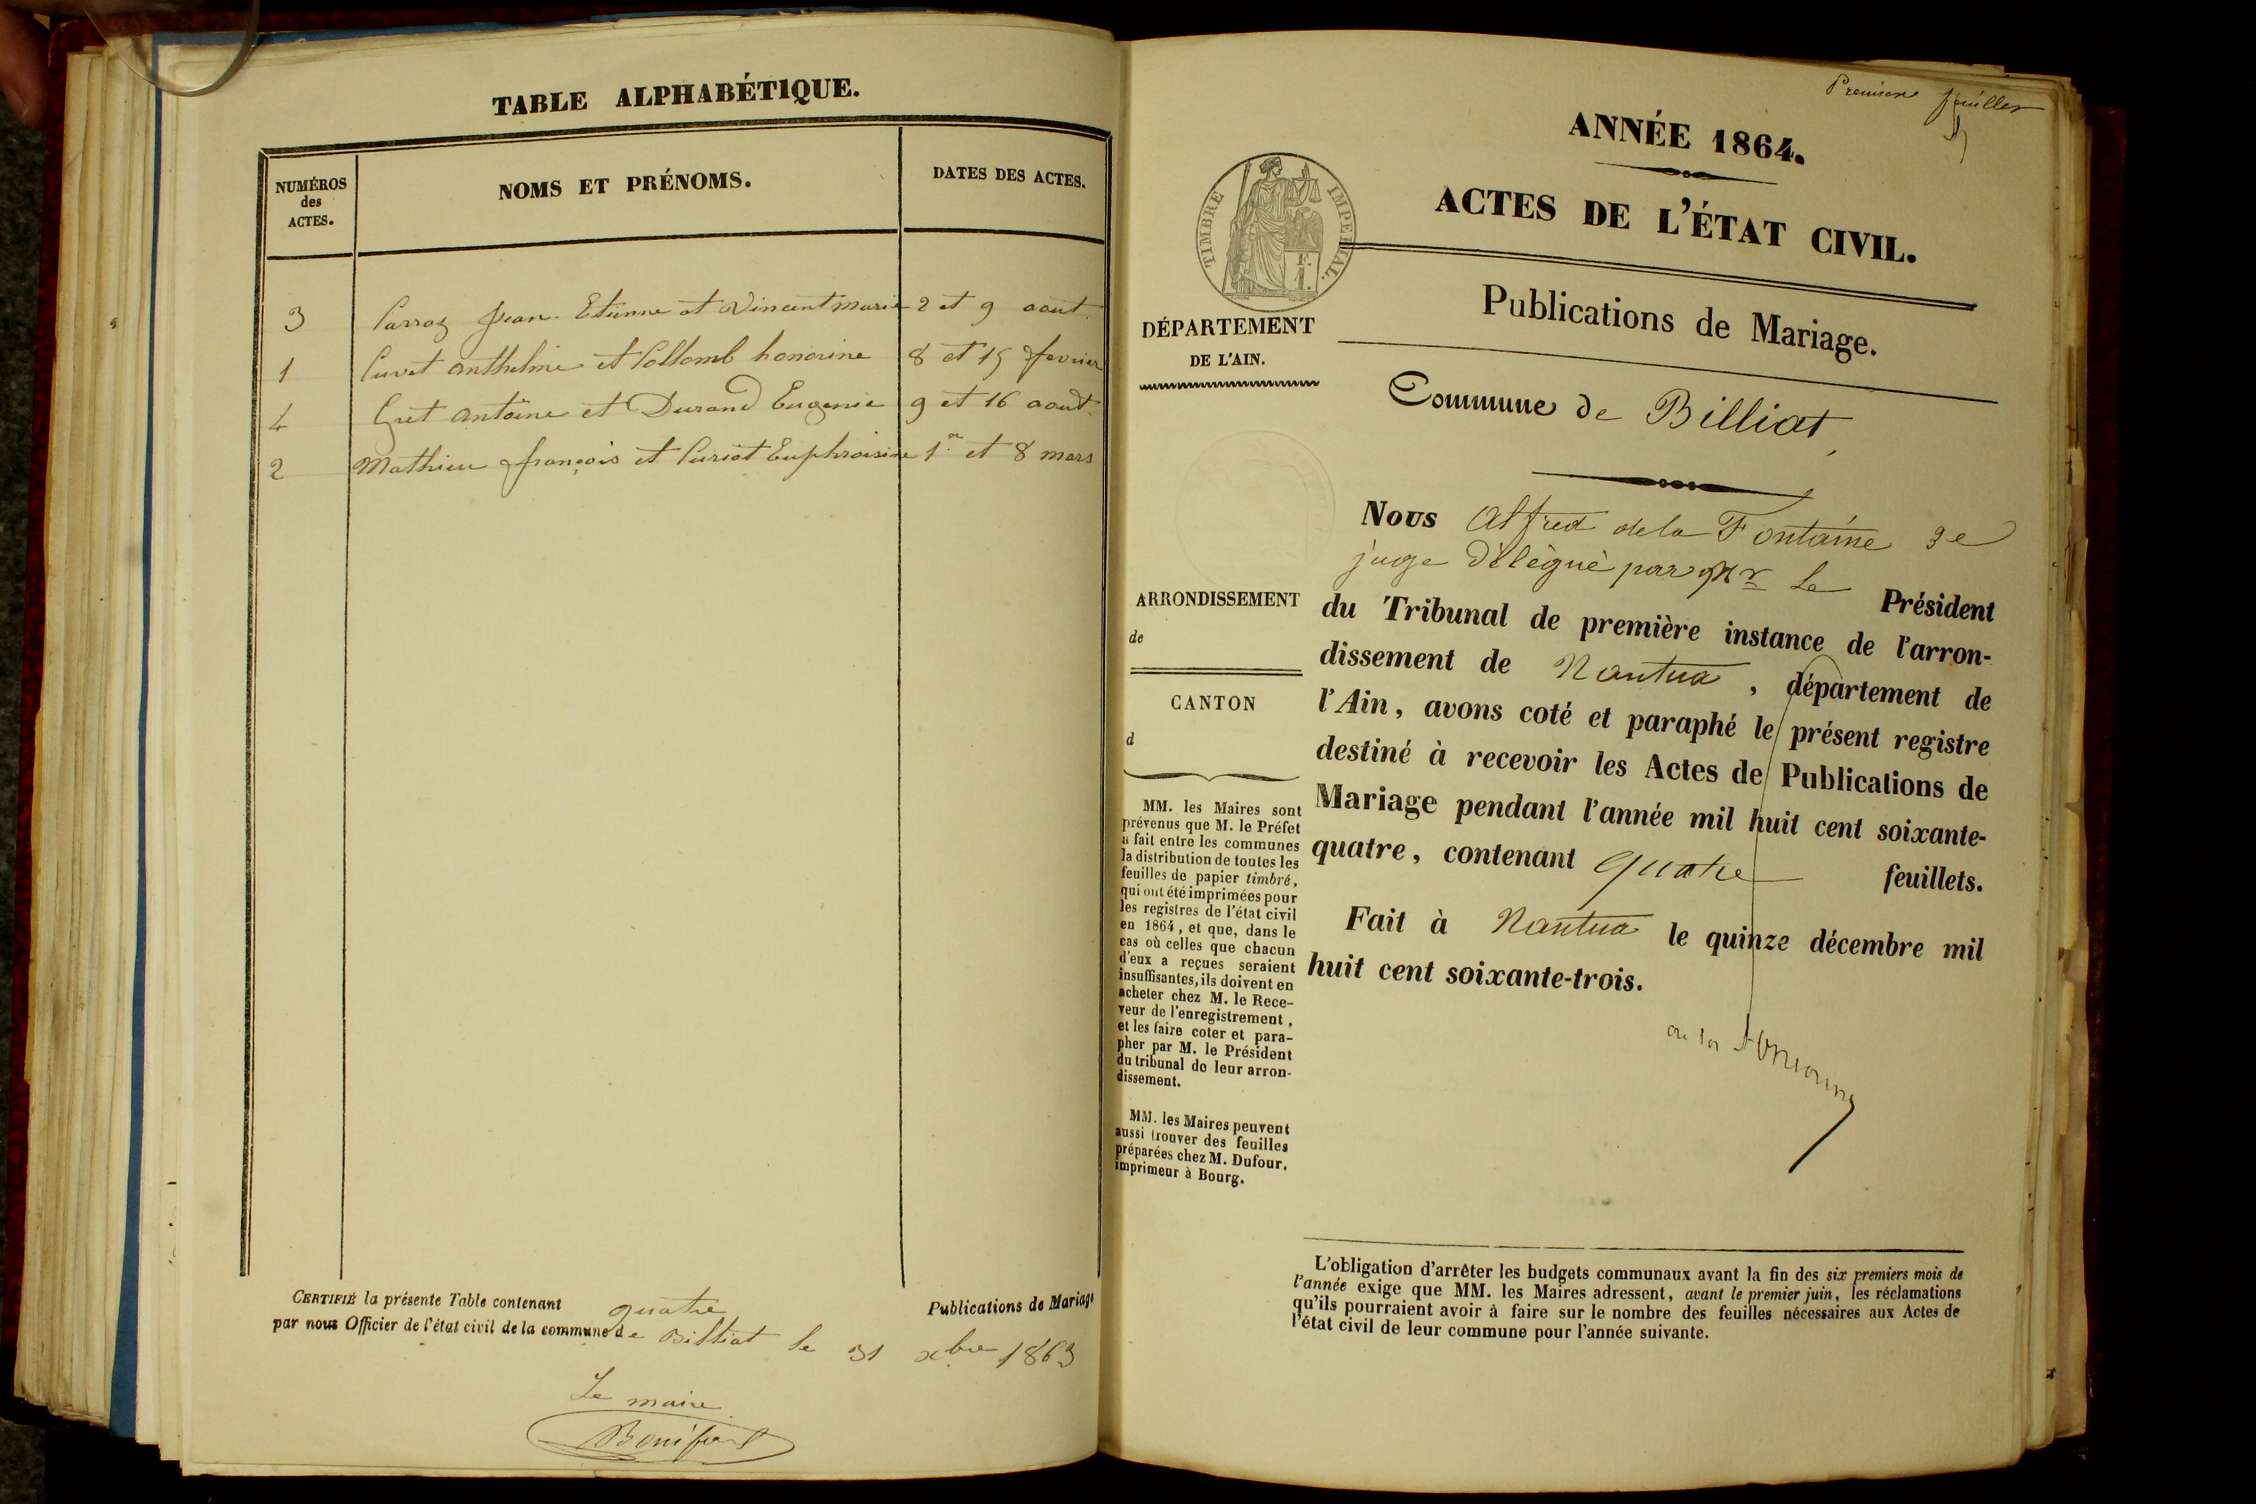 TABLE ALPHABÉTIQUE.
NUMÉROS
des
ACTES.
NOMS ET PRÉNOMS.
DATES DES ACTES.
3 Carraz Jean Etienne et Vincent Marie 2 et 9 aout
1 Cuvet anthelme et Collomb honorine 8 et 15 fevrier
4 Gret antoine et Durand Eugenie 9 et 16 aout
2 Mathieu françois et Curiat Euphroisine 1er et 8 mars
CERTIFIÉ la présente Table contenant quatre Publications de Mariage
par nous Officier de l'état civil de la commune de Billiat le 31 xbre 1863
Le maire
Premier feuillet
ANNÉE 1864.
ACTES DE L'ÉTAT CIVIL.
TIMBRE IMPÉRIAL.
Publications de Mariage.
DÉPARTEMENT
DE L'AIN.
Commune de Billiat
Nous Alfred de la Fontaine 3e
juge délégué par Mr Le Président
du Tribunal de première instance de l'arron-
dissement de Nantua, département de
l'Ain, avons coté et paraphé le présent registre
destiné à recevoir les Actes de Publications de
Mariage pendant l'année mil huit cent soixante-
quatre, contenant quatre feuillets.
Fait à Nantua le quinze décembre mil
huit cent soixante-trois.
ARRONDISSEMENT
de
CANTON
d
MM. les Maires sont
prévenus que M. le Préfet
a fait entre les communes
la distribution de toutes les
feuilles de papier timbré,
qui ont été imprimées pour
les registres de l'état civil
en 1864, et que, dans le
cas où celles que chacun
d'eux a reçues seraient
insuffisantes, ils doivent en
acheter chez M. le Rece-
veur de l'enregistrement,
et les faire coter et para-
pher par M. le Président
du tribunal de leur arron-
dissement.
MM. les Maires peuvent
aussi trouver des feuilles
préparées chez M. Dufour,
imprimeur à Bourg.
L'obligation d'arrêter les budgets communaux avant la fin des six premiers mois de
l'année exige que MM. les Maires adressent, avant le premier juin, les réclamations
qu'ils pourraient avoir à faire sur le nombre des feuilles nécessaires aux Actes de
l'état civil de leur commune pour l'année suivante.